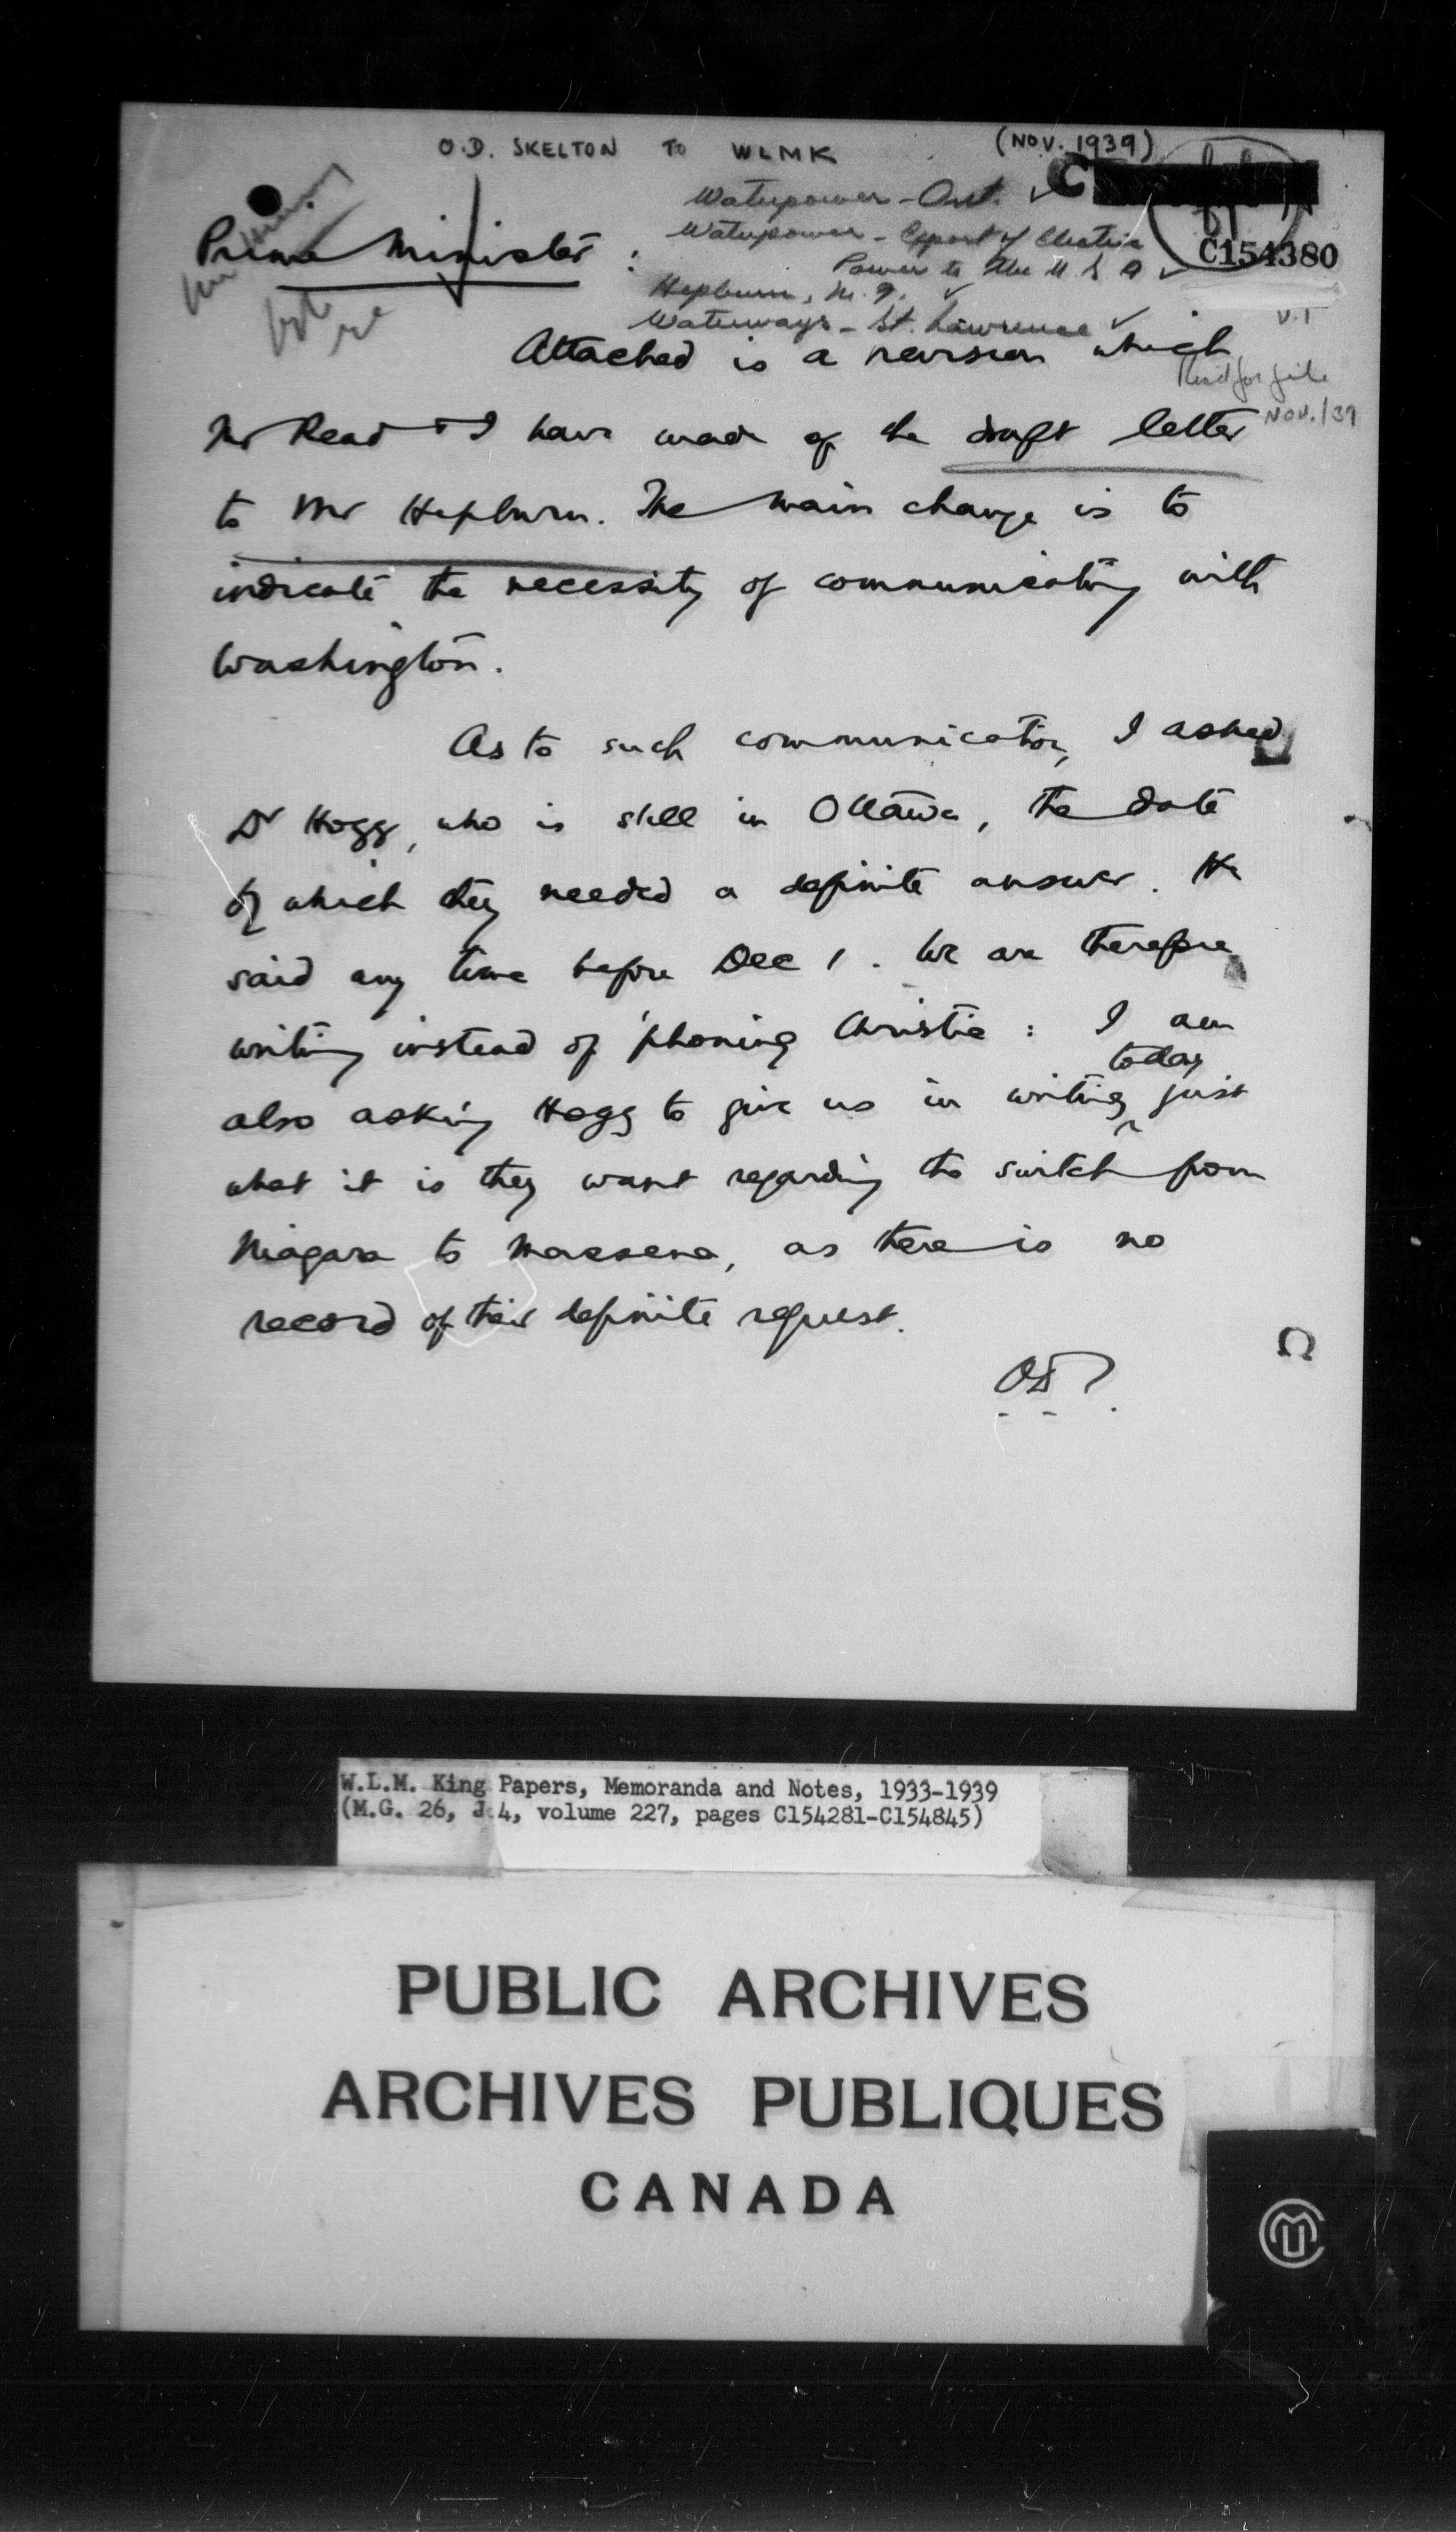 O.D. SKELTON TO WLMK (NOV. 1939)
Waterpower - Ont. C
Waterpower - Export of Electric
Power to the U S A
C154380
Hepburn, M. F.
Waterways - St. Lawrence
V.T
Prime Minister :
Attached is a revision which
file
NOV./39
Mr Read + I have made of the draft letter
to Mr Hepburn. The main change is to
indicate the necessity of communicating with
Washington.
As to such communication, I asked
Dr Hogg, who is still in Ottawa, the date
by which they needed a definite answer. He
said any time before Dec 1. We are therefore
writing instead of 'phoning Christie : I am
today
also asking Hogg to give us in writing ^ just
what it is they want regarding the switch from
Niagara to Massena, as there is no
record of their definite request.
O.D.S.
W.L.M. King Papers, Memoranda and Notes, 1933-1939
(M.G. 26, J 4, volume 227, pages C154281-C154845)
PUBLIC ARCHIVES
ARCHIVES PUBLIQUES
CANADA